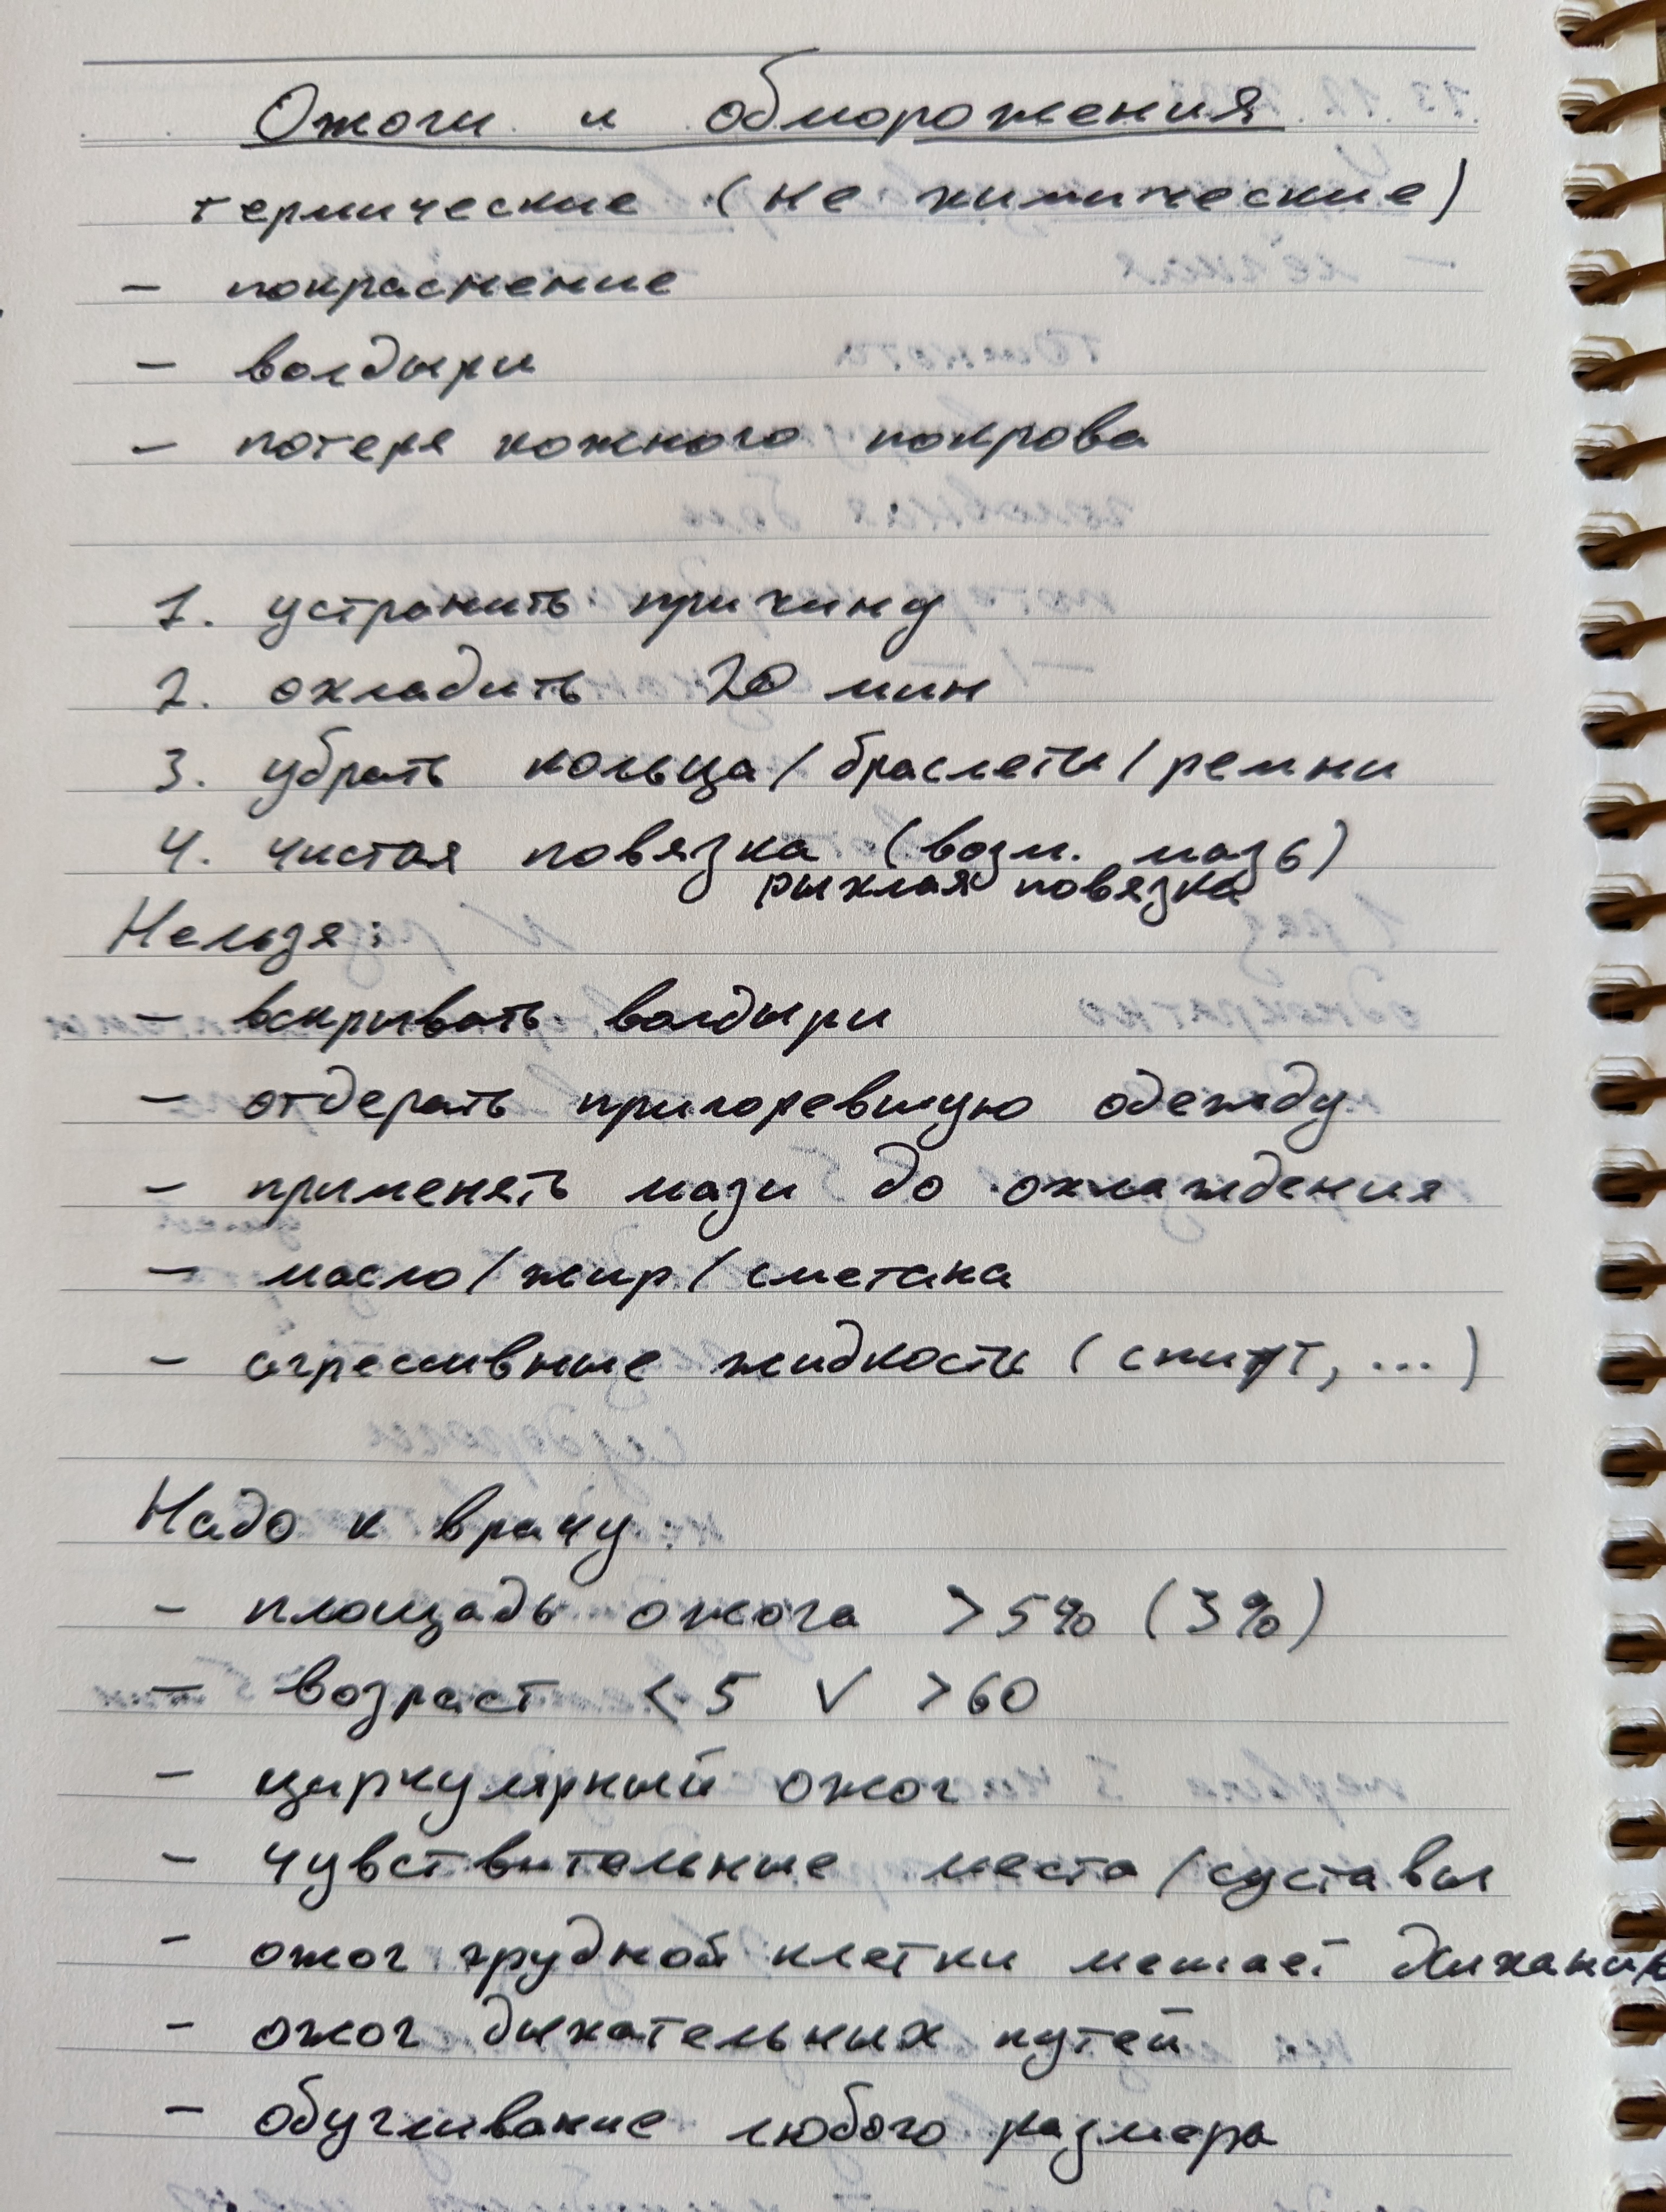 Ожоги и обморожения
термические (не химические)
- покраснение
- волдыри
- потеря кожного покрова
1. устранить причину
2. охладить 20 мин
3. убрать кольца/браслеты/ремни
4. чистая повязка (возм. мазь)
рыхлая повязка
Нельзя:
- вскрывать волдыри
- отдерать пригоревшую одежду
- применять мази до охлаждения
- масло/жир/сметана
- агрессивные жидкости (спирт, ...)
Надо к врачу:
- площадь ожога >5% (3%)
- возраст <5 V >60
- циркулярный ожог
- чувствительные места/суставы
- ожог грудной клетки мешает дыханию
- ожог дыхательных путей
- обугливание любого размера